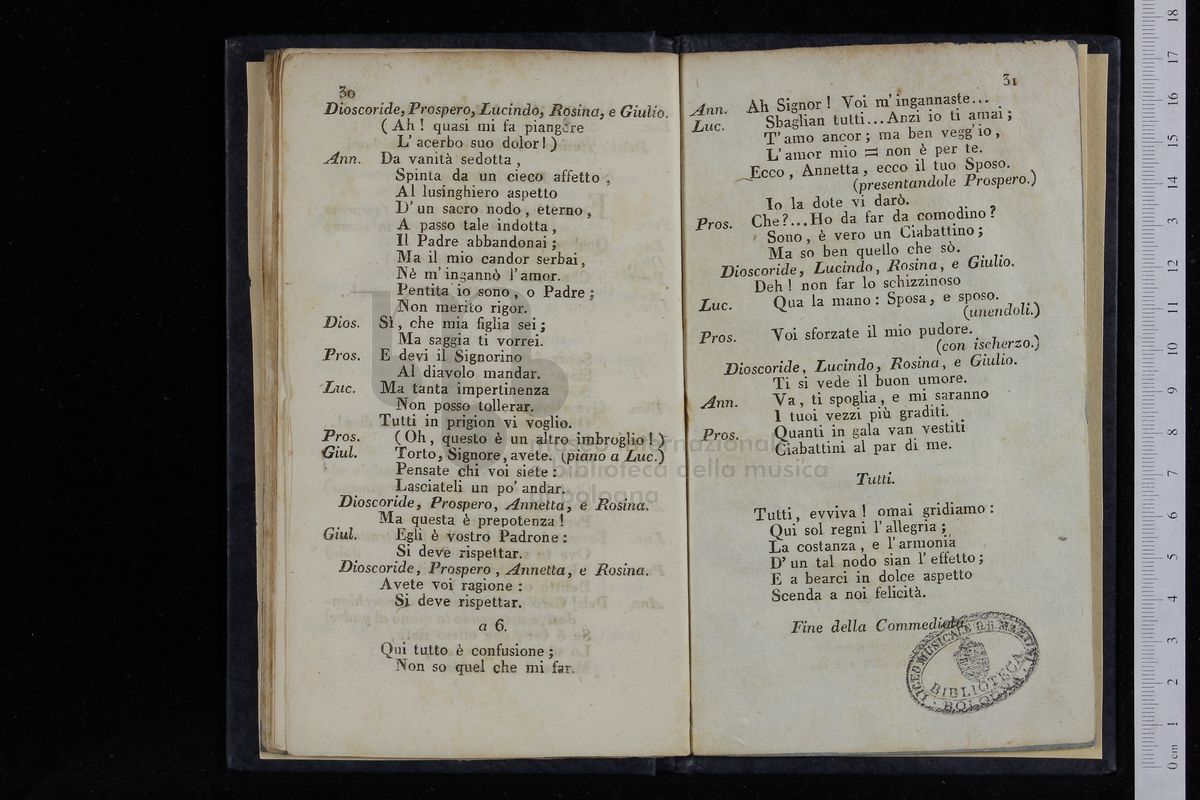 30
Dioscoride, Prospero, Lucindo, Rosina, e Giulio.
( Ah ! quasi mi fa piangere
L' acerbo suo dolor ! )
Ann. Da vanità sedotta ,
Spinta da un cieco affetto ,
Al lusinghiero aspetto
D' un sacro nodo , eterno ,
A passo tale indotta ,
Il Padre abbandonai ;
Ma il mio candor serbai,
Nè m' ingannò l' amor.
Pentita io sono , o Padre ;
Non merito rigor.
Dios. Sì , che mia figlia sei ;
Ma saggia ti vorrei.
Pros. E devi il Signorino
Al diavolo mandar.
Luc. Ma tanta impertinenza
Non posso tollerar.
Tutti in prigion vi voglio.
Pros. (Oh, questo è un altro imbroglio ! )
Giul. Torto, Signore, avete. (piano a Luc.)
Pensate chi voi siete :
Lasciateli un po' andar.
Dioscoride, Prospero, Annetta, e Rosina.
Ma questa è prepotenza !
Giul. Egli è vostro Padrone :
Si deve rispettar.
Dioscoride, Prospero , Annetta, e Rosina.
Avete voi ragione :
Si deve rispettar.
a 6.
Qui tutto è confusione ;
Non so quel che mi far.
31
Ann. Ah Signor ! Voi m' ingannaste...
Luc. Sbaglian tutti...Anzi io ti amai ;
T' amo ancor ; ma ben vegg' io ,
L' amor mio = non è per te.
Ecco , Annetta , ecco il tuo Sposo.
(presentandole Prospero.)
Io la dote vi darò.
Pros. Che ?...Ho da far da comodino ?
Sono , è vero un Ciabattino ;
Ma so ben quello che sò.
Dioscoride, Lucindo, Rosina, e Giulio.
Deh ! non far lo schizzinoso
Luc. Qua la mano : Sposa, e sposo.
(unendoli.)
Pros. Voi sforzate il mio pudore.
(con ischerzo.)
Dioscoride, Lucindo, Rosina, e Giulio.
Ti si vede il buon umore.
Ann. Va , ti spoglia , e mi saranno
I tuoi vezzi più graditi.
Pros. Quanti in gala van vestiti
Ciabattini al par di me.
Tutti.
Tutti, evviva ! omai gridiamo :
Qui sol regni l' allegria ;
La costanza , e l' armonia
D' un tal nodo sian l' effetto ;
E a bearci in dolce aspetto
Scenda a noi felicità.
Fine della Commedia.
LICEO MUSICALE G.B. MARTINI
BIBLIOTECA
BOLOGNA
museo internazionale
e biblioteca della musica
di bologna
0 cm 1 2 3 4 5 6 7 8 9 10 11 12 13 14 15 16 17 18